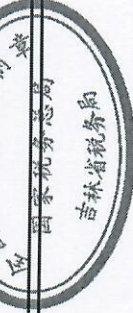 全
制章
国家税务总局
吉林省税务局